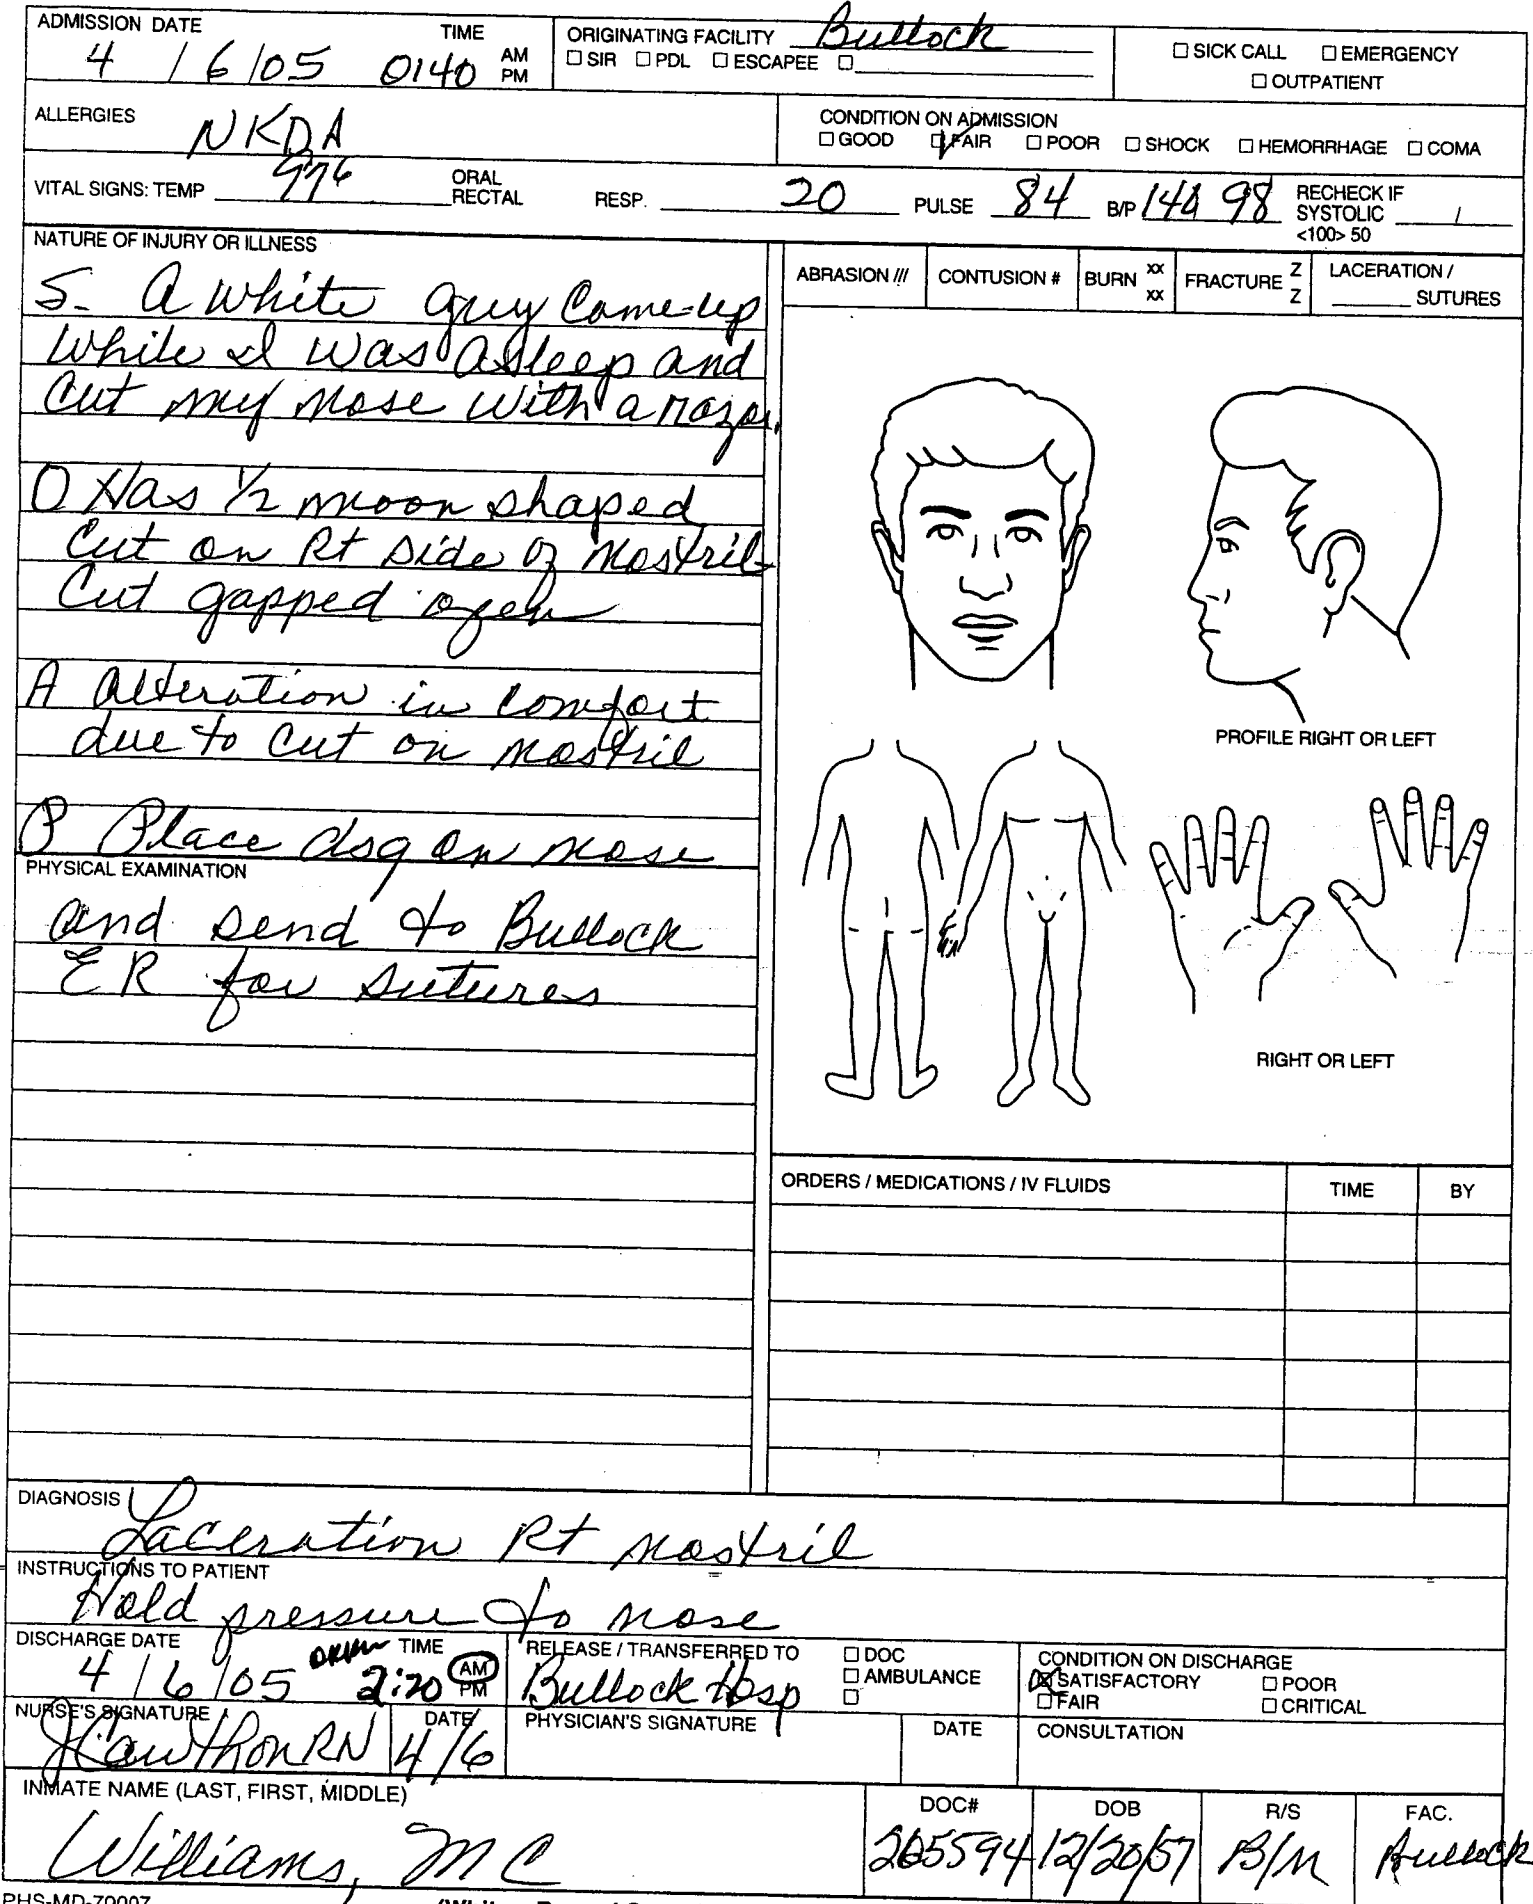 ADMISSION DATE TIME AM PM
4 / 6 / 05 0140
ORIGINATING FACILITY Bullock
☐ SIR ☐ PDL ☐ ESCAPEE ☐
☐ SICK CALL ☐ EMERGENCY
☐ OUTPATIENT
ALLERGIES NKDA
CONDITION ON ADMISSION
☐ GOOD ☑ FAIR ☐ POOR ☐ SHOCK ☐ HEMORRHAGE ☐ COMA
VITAL SIGNS: TEMP 97⁶ ORAL RECTAL RESP. 20 PULSE 84 B/P 98 RECHECK IF SYSTOLIC / <100> 50
NATURE OF INJURY OR ILLNESS
S- A white guy Came-up
While I was asleep and
Cut my nose with a razor.
O Has 1/2 moon shaped
Cut on Rt side of Nostril
Cut gapped open
A Alteration in comfort
due to cut on nostril
P Place dsg on nose
PHYSICAL EXAMINATION
and send to Bullock
ER for sutures
ABRASION /// CONTUSION # BURN xx xx FRACTURE Z Z LACERATION / SUTURES
PROFILE RIGHT OR LEFT
RIGHT OR LEFT
ORDERS / MEDICATIONS / IV FLUIDS TIME BY
DIAGNOSIS
Laceration Rt nostril
INSTRUCTIONS TO PATIENT
Hold pressure to nose
DISCHARGE DATE TIME AM PM
4 / 6 / 05 2:20
RELEASE / TRANSFERRED TO ☐ DOC
☐ AMBULANCE
☐
Bullock Hosp
CONDITION ON DISCHARGE
☒ SATISFACTORY ☐ POOR
☐ FAIR ☐ CRITICAL
NURSE'S SIGNATURE DATE PHYSICIAN'S SIGNATURE DATE CONSULTATION
JCawthon RN 4/6
INMATE NAME (LAST, FIRST, MIDDLE) DOC# DOB R/S FAC.
Williams, MC 205594 12/20/57 B/M Bullock
PHS-MD-70007